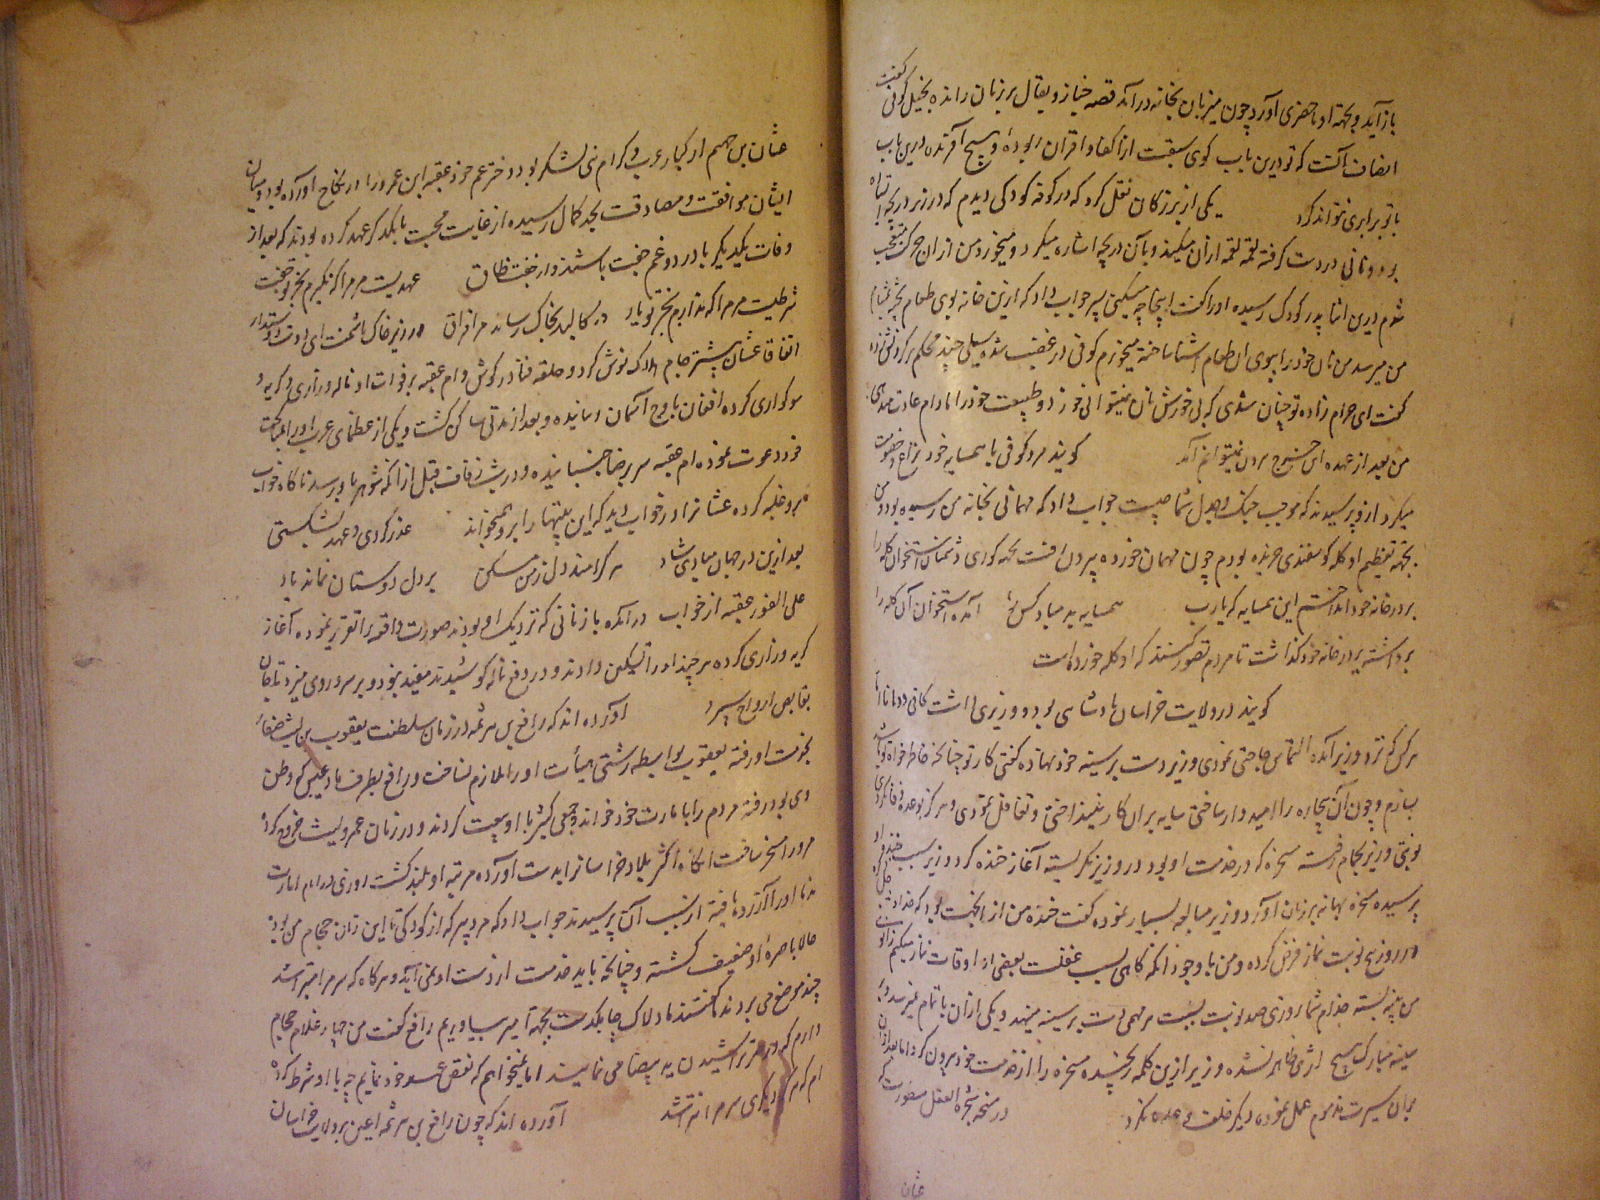 باز آید و بجهت او ماحضری آورد چون میزبان بخانه درآمد قصه خباز و بقال بر زبان رانده بخیل کوفی گفت
انصاف آنست که تو درین باب کوی سبقت از اکفا و اقران ربوده و هیچ آفریده درین باب
با تو برابری نتواند کرد یکی از بزرگان نقل کرد که در کوفه کودکی دیدم که در زیر دریچه ایستاده
بود و نانی در دست گرفته لقمه لقمه از آن میکند و بآن دریچه اشاره میکرد و میخورد من از ان حرکت متعجب
شدم درین اثنا پدر کودک رسیده او را گفت اینجا چه میکنی پسر جواب داد که ازین خانه بوی طعام بمشام
من میرسد من نان خود را ببوی ان طعام آشنا ساخته میخورم کوفی در غضب شده سیلی چند محکم بر گردنش زد
گفت ای حرام زاده تو چنان شدی که بی خورش نان نمیتوانی خورد و طبیعت خود را مادام عادت میدهی
من بعد از عهده این خرج بیرون نمیتوانم آمد گویند مرد کوفی با همسایه خود نزاع و خصومت
میکرد ازو پرسیدند که موجب جنگ و جدل شما چیست جواب داد که مهمانی بخانه من رسیده بود و من
بجهة تعظیم او کله گوسفندی خریده بودم چون مهمان خورده بیرون رفت بجهه کوری دشمنان استخوان کله را
بر در خانه خود انداختم این همسایه که یارب همسایه بد مباد کس را آمده استخوان آن کله را
برداشته بر در خانه خود گذاشت تا مردم تصور کنند که او کله خورده است
گویند در ولایت خراسان پادشاهی بود و وزیری داشت کافی و دانا اما
هر کس که نزد وزیر آمده التماس حاجتی نمودی وزیر دست بر سینه خود نهاده گفتی کار تو چنانکه خاطر خواه تو باشد
بسازم و چون آن بیچاره را امیدوار ساختی سایه بران کار نینداختی و تغافل نمودی و هرگز بوعده وفا نکردی
نوبتی وزیر بحمام رفته مسخره که در خدمت او بود در وزیر نگریسته آغاز خنده کرد وزیر سبب خنده او
پرسیده مسخره بهانه بر زبان آورد وزیر مبالغه بسیار نموده گفت خنده من از انجهت بود که خداوند
در روز پنج نوبت نماز فرض کرده و من با وجود انکه گاهی بسبب غفلت بعضی از اوقات نماز میکنم زانوی
من پینه بسته خدام شما روزی صد نوبت بسبب هر مهمی دست بر سینه مینهد و یکی از ان باتمام نمیرسد و بر
سینه مبارک هیچ اثری ظاهر نشده وزیر ازین کلمه رنجیده مسخره را از خدمت خود بیرون کرد اما بعد از ان
بران سیرت مذموم عمل نموده دیگر خلف وعده نکرد در نسخه شجرة العقل مسطورست که
عتان
عتان بن جهم از کبار عرب و کرام بنی لشکر بود و دختر عم خود عقبه ابن عمرو را در نکاح آورده بود و میان
ایشان موافقت و مصادقت بحد کمال رسیده از غایت محبت با یکدیگر عهد کرده بودند که بعد از
وفات یکدیگر با درد و غم جفت باشند و از جفت طاق عهدیست مرا که نگیرم بجز تو جفت
شرطیست مرا که ندارم بجز تو یار در کالبد بخاک رساند مرا فراق در زیر خاک باشمت ای دوست دوستدار
اتفاقا عتان پیشتر جام هلاک نوش کرد و حلقه فنا در گوش و ام عقبه بر فوات او ناله و زاری و گریه و
سوگواری کرده افغان باوج آسمان رسانیده و بعد از مدتی ساکن گشت و یکی از عظمای عرب او را بنکاح
خود دعوت نموده ام عقبه سر برضا جنبانیده و در شب زفاف قبل از انکه شوهر باو رسد ناگاه خواب
برو غلبه کرده عتانرا در خواب دید که این بیتها را برو میخواند عذر کردی و عهد بشکستی
بعد ازین در جهان مبادی شاد هر کرا شد دل از من مسکین بر دل دوستان نماند یاد
علی الفور عقبه از خواب درآمده با زنانی که نزدیک او بودند صورت واقعه را تقریر نموده آغاز
گریه و زاری کرده هر چند او را تسکین دادند و در دفع ناله کوشیدند مفید نبود و بر سر و روی میزد تا جان
بقابض ارواح سپرد آورده اند که رافع بن هرثمه در زمان سلطنت یعقوب بن لیث صفار
بخدمت او رفته یعقوب بواسطه زشتی هیأت او را ملازم نساخت و رافع بطرف بادغیس که وطن
وی بود رفته مردم را بامارت خود خواند و جمعی کثیر با او بیعت کردند و در زمان عمرو لیث خروج کرد
مرو را مسخر ساخت انگاه اکثر بلاد خراسانرا بدست آورده مرتبه او بلند گشت روزی در ایام امارت
ندما او را آزرده یافته از سبب آن پرسیدند جواب داد که مرد پیر که از کودکی تا این زمان حجام من بود
حالا باصره او ضعیف گشته و چنانکه باید خدمت از دست او نمی آید و هر گاه که سر مرا میتراشد
چند موضع می برد ندما گفتند ما دلاک چابکدست بجهه امیر بیاوریم رافع گفت من چهار غلام حجام
دارم که در سر تراشیدن ید بیضا می نمایند اما نمیخواهم که نقض عهد خود نمایم چه با او شرط کرده
ام که دیگری سر مرا نتراشد آورده اند که چون رافع بن هرثمه اعین بر ولایت خراسان